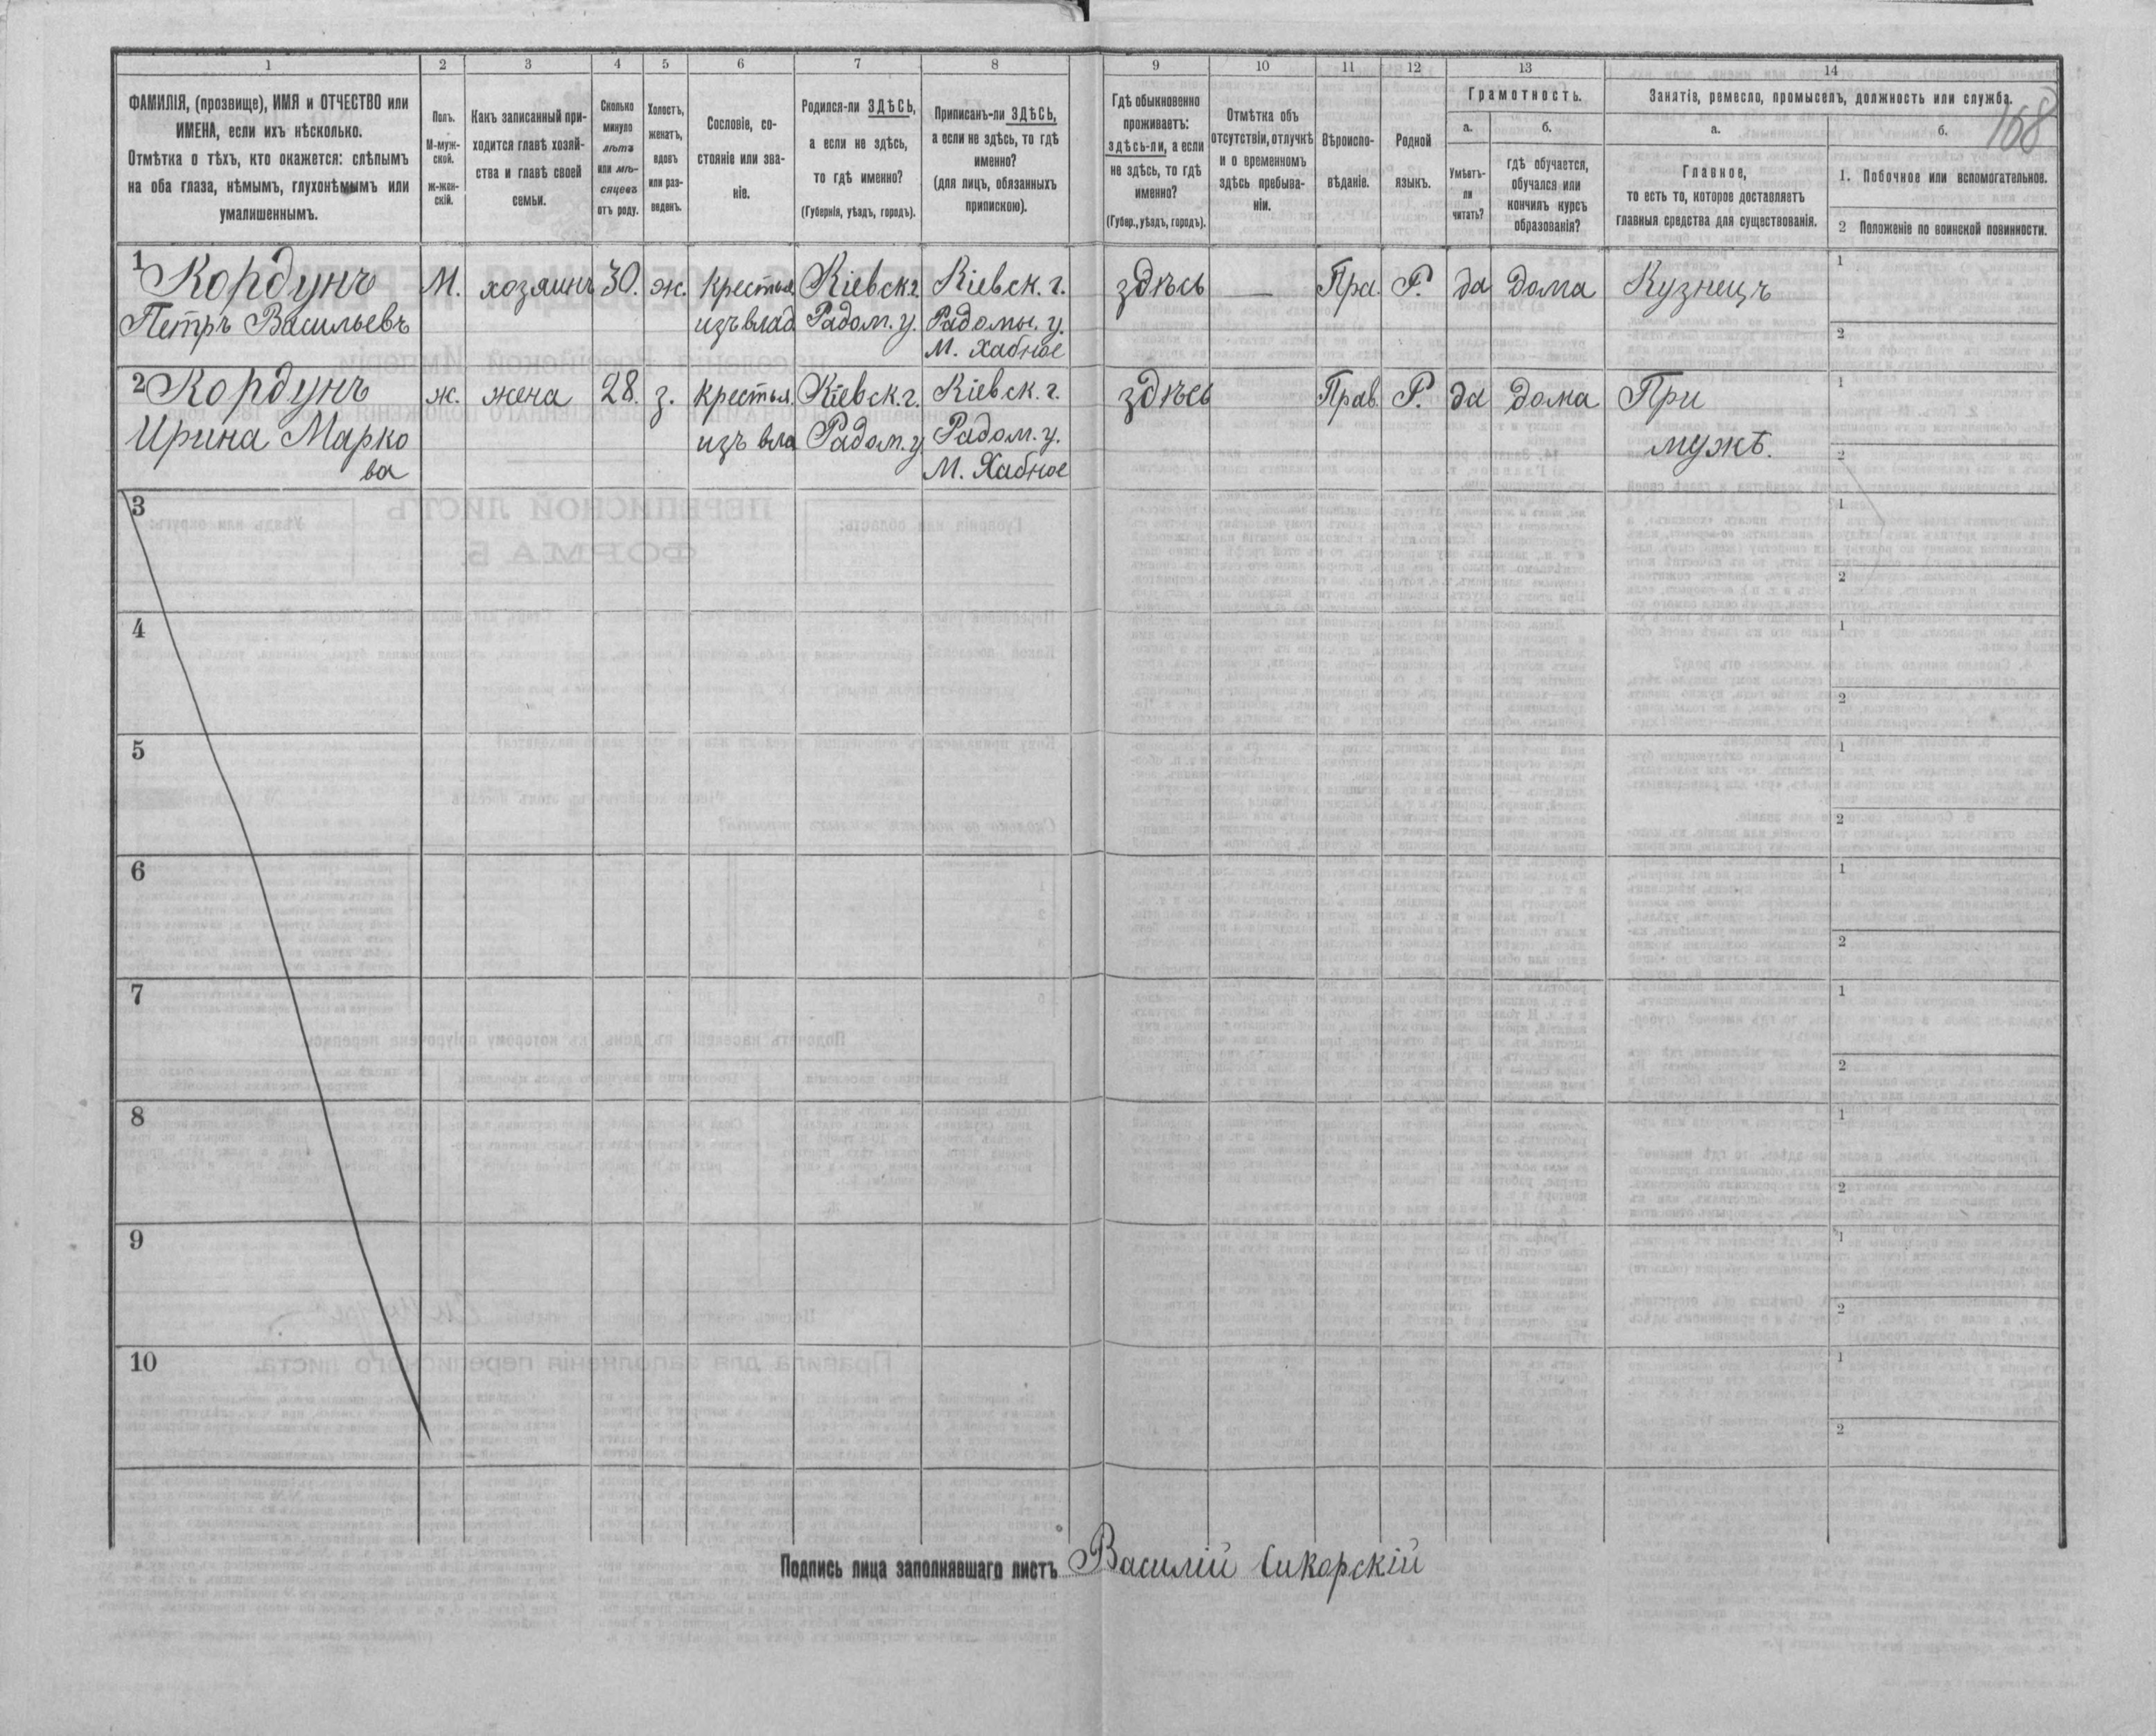 1 2 3 4 5 6 7 8 9 10 11 12 13 14
168
ФАМИЛІЯ, (прозвище), ИМЯ и ОТЧЕСТВО или
ИМЕНА, если ихъ нѣсколько.
Отмѣтка о тѣхъ, кто окажется: слѣпымъ
на оба глаза, нѣмымъ, глухонѣмымъ или
умалишеннымъ.
Полъ.
М-муж-
ской.
ж-жен-
скій.
Какъ записанный при-
ходится главѣ хозяй-
ства и главѣ своей
семьи.
Сколько
минуло
лѣтъ
или мѣ-
сяцевъ
отъ роду.
Холостъ,
женатъ,
вдовъ
или раз-
веденъ.
Сословіе, со-
стояніе или зва-
ніе.
Родился-ли ЗДѢСЬ,
а если не здѣсь,
то гдѣ именно?
(Губернія, уѣздъ, городъ).
Приписанъ-ли ЗДѢСЬ,
а если не здѣсь, то гдѣ
именно?
(для лицъ, обязанныхъ
припискою).
Гдѣ обыкновенно
проживаетъ:
здѣсь-ли, а если
не здѣсь, то гдѣ
именно?
(Губер., уѣздъ, городъ).
Отмѣтка объ
отсутствіи, отлучкѣ
и о временномъ
здѣсь пребыва-
ніи.
Вѣроиспо-
вѣданіе.
Родной
языкъ.
Грамотность.
а.
Умѣетъ-
ли
читать?
б.
гдѣ обучается,
обучался или
кончилъ курсъ
образованія?
Занятіе, ремесло, промыселъ, должность или служба.
а.
Главное,
то есть то, которое доставляетъ
главныя средства для существованія.
б.
1. Побочное или вспомогательное.
2 Положеніе по воинской повинности.
1 Кордунъ М. хозяинъ 30. ж. Крестья Кіевск г. Кіевск. г. здѣсь — Пра. Р. да дома Кузнецъ 1
Петръ Васильевъ изъ влад Радом. у. Радомы. у. 2
М. Хабное
2 Кордунъ ж. жена 28. з. Крестья. Кіевск. г. Кіевск. г. здѣсь Прав. Р. да дома При 1
Ирина Марко изъ вла Радом. у Радом. у. мужѣ. 2
ва М. Хабное
3 1
2
4 1
2
5 1
2
6 1
2
7 1
2
8 1
2
9 1
2
10 1
2
Подпись лица заполнявшаго листъ Василій Сикорскій